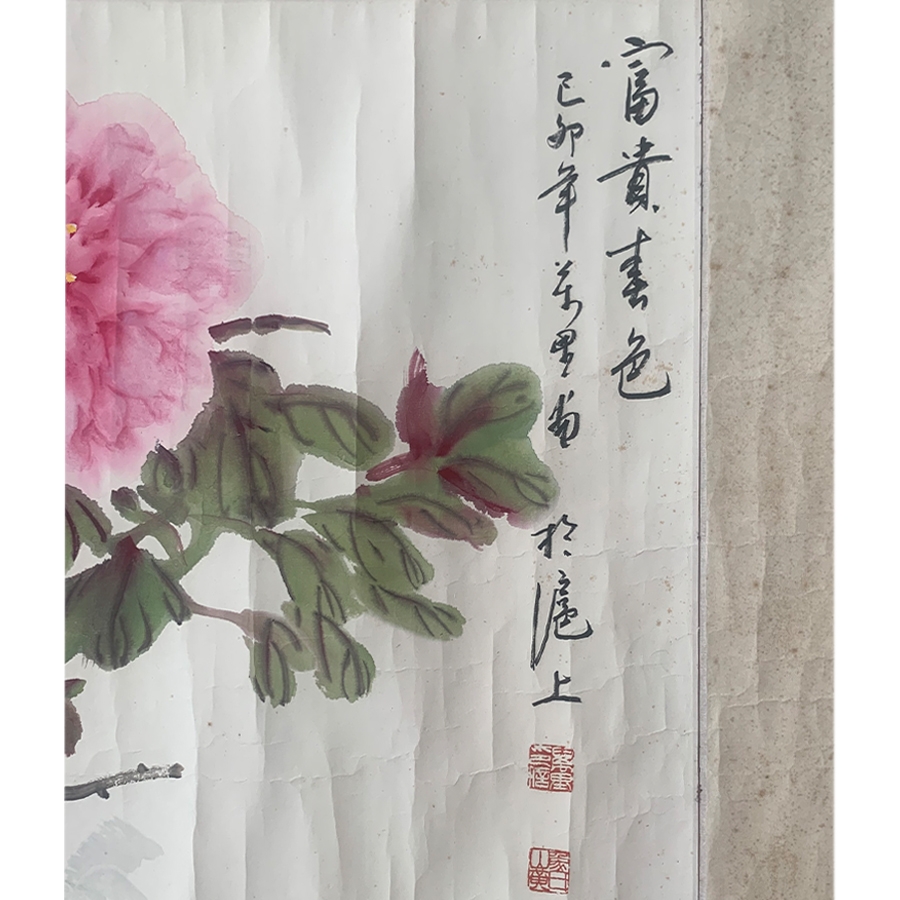 富貴春色
己卯年萬里畫
於滬上